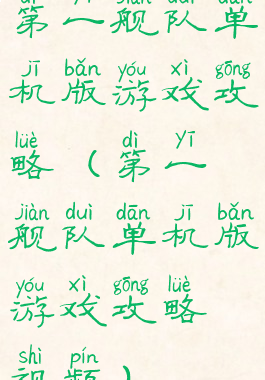 dì yī jiàn duì dān
第一舰队单
jī bǎn yóu xì gōng
机版游戏攻
lüè dì yī
略（第一
jiàn duì dān jī bǎn
舰队单机版
yóu xì gōng lüè
游戏攻略
shì pín
视频）